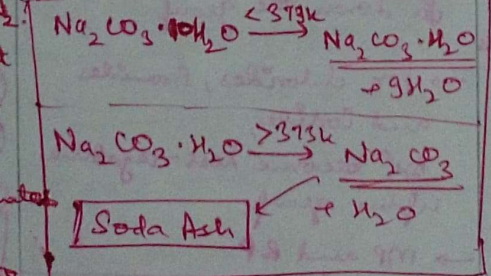 2.
Na₂CO₃·10H₂O <373K→ Na₂CO₃·H₂O
+ 9H₂O
Na₂CO₃·H₂O >373K→ Na₂CO₃
+ H₂O
Soda Ash